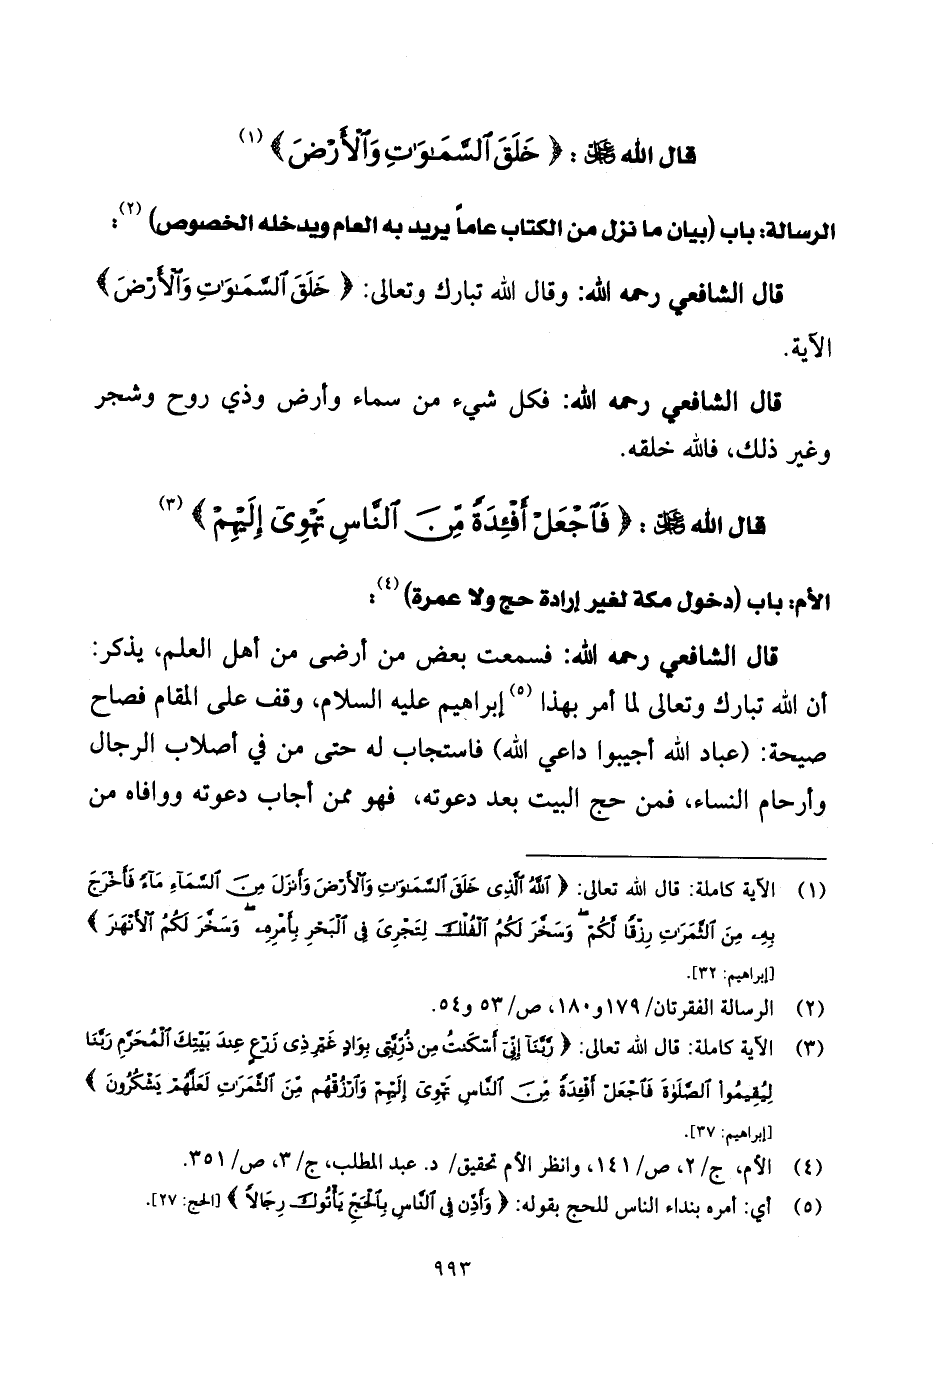 قال الله ﷻ : ﴿ خَلَقَ ٱلسَّمَـٰوَٰتِ وَٱلْأَرْضَ ﴾ (١)
الرسالة: باب (بيان ما نزل من الكتاب عاماً يريد به العام ويدخله الخصوص) (٢):
قال الشافعي رحمه الله: وقال الله تبارك وتعالى: ﴿ خَلَقَ ٱلسَّمَـٰوَٰتِ وَٱلْأَرْضَ ﴾
الآية.
قال الشافعي رحمه الله: فكل شيء من سماء وأرض وذي روح وشجر
وغير ذلك، فالله خلقه.
قال الله ﷻ : ﴿ فَٱجْعَلْ أَفْـِٔدَةً مِّنَ ٱلنَّاسِ تَهْوِىٓ إِلَيْهِمْ ﴾ (٣)
الأم: باب (دخول مكة لغير إرادة حج ولا عمرة) (٤):
قال الشافعي رحمه الله: فسمعت بعض من أرضى من أهل العلم، يذكر:
أن الله تبارك وتعالى لما أمر بهذا (٥) إبراهيم عليه السلام، وقف على المقام فصاح
صيحة: (عباد الله أجيبوا داعي الله) فاستجاب له حتى من في أصلاب الرجال
وأرحام النساء، فمن حج البيت بعد دعوته، فهو ممن أجاب دعوته ووافاه من
(١) الآية كاملة: قال الله تعالى: ﴿ ٱللَّهُ ٱلَّذِى خَلَقَ ٱلسَّمَـٰوَٰتِ وَٱلْأَرْضَ وَأَنزَلَ مِنَ ٱلسَّمَآءِ مَآءً فَأَخْرَجَ
بِهِۦ مِنَ ٱلثَّمَرَٰتِ رِزْقًا لَّكُمْ ۖ وَسَخَّرَ لَكُمُ ٱلْفُلْكَ لِتَجْرِىَ فِى ٱلْبَحْرِ بِأَمْرِهِۦ ۖ وَسَخَّرَ لَكُمُ ٱلْأَنْهَـٰرَ ﴾
[إبراهيم: ٣٢].
(٢) الرسالة الفقرتان/ ١٧٩ و١٨٠، ص/ ٥٣ و٥٤.
(٣) الآية كاملة: قال الله تعالى: ﴿ رَّبَّنَآ إِنِّىٓ أَسْكَنتُ مِن ذُرِّيَّتِى بِوَادٍ غَيْرِ ذِى زَرْعٍ عِندَ بَيْتِكَ ٱلْمُحَرَّمِ رَبَّنَا
لِيُقِيمُوا۟ ٱلصَّلَوٰةَ فَٱجْعَلْ أَفْـِٔدَةً مِّنَ ٱلنَّاسِ تَهْوِىٓ إِلَيْهِمْ وَٱرْزُقْهُم مِّنَ ٱلثَّمَرَٰتِ لَعَلَّهُمْ يَشْكُرُونَ ﴾
[إبراهيم: ٣٧].
(٤) الأم، ج/ ٢، ص/ ١٤١، وانظر الأم تحقيق/ د. عبد المطلب، ج/ ٣، ص/ ٣٥١.
(٥) أي: أمره بنداء الناس للحج بقوله: ﴿ وَأَذِّن فِى ٱلنَّاسِ بِٱلْحَجِّ يَأْتُوكَ رِجَالًا ﴾ [الحج: ٢٧].
٩٩٣